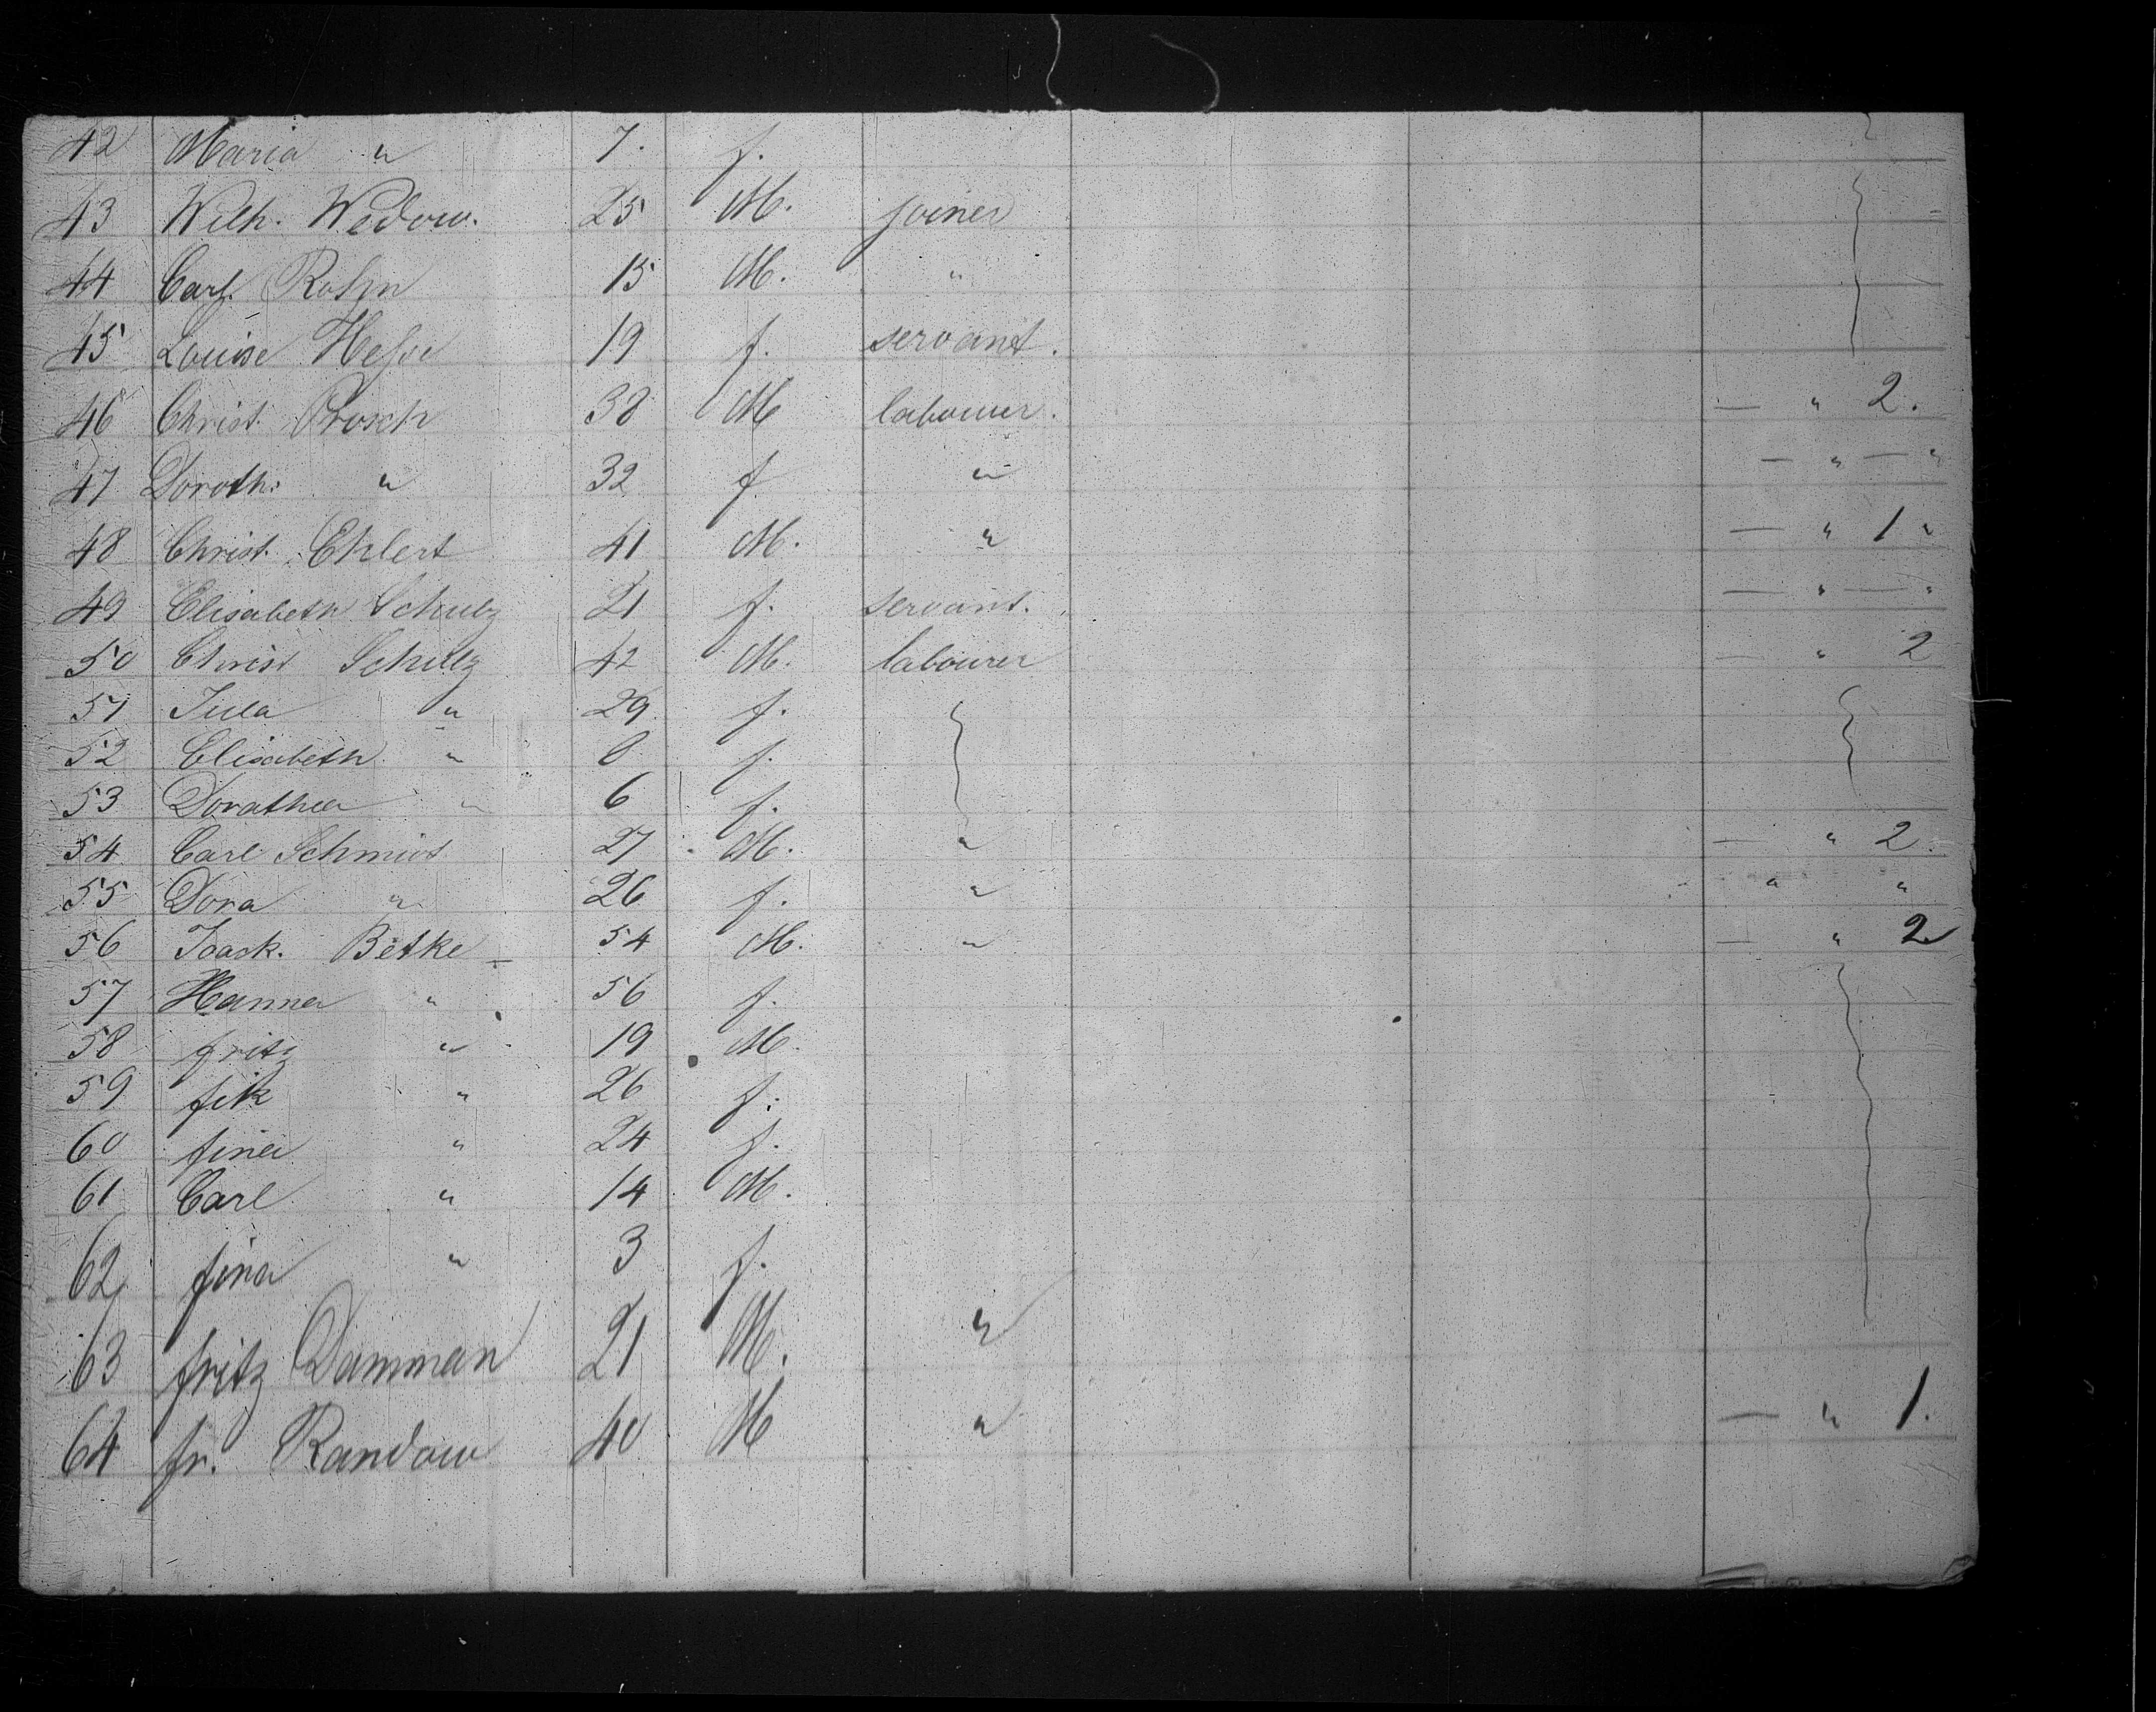 42 Maria " 7. f.
43 Wilh. Wedow. 25 M. joiner
44 Carl. Rohn 15 M. "
45 Louise Hesse 19 f. servant.
46 Christ. Prosch 38 M labourer. — " 2.
47 Doroth: " 32 f " — " — "
48 Christ. Ehlert 41 M. " — " 1 "
49 Elisabeth Schulz 21 f. servant. — " — "
50 Christ Schulz 42 M. labourer — " 2
51 " 29 f.
52 Elisabeth " f.
53 Dorathea " 6 f.
54 Carl Schmidt 27 M. " — " 2.
55 Dora " 26 f. " " "
56 Joach. Betke 54 M. " — " 2
57 Hanna " 56 f.
58 fritz " 19 M.
59 fik " 26 f.
60 fina " 24 f.
61 Carl " 14 M.
62 fina " 3 f.
63 fritz Damman 21 M. "
64 fr. Randow 40 M " — " 1.